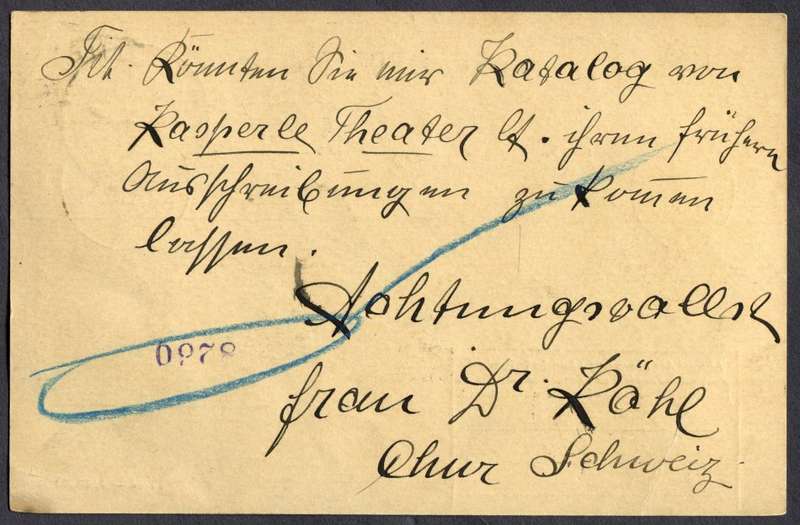 Tit. Könnten Sie mir Katalog von
Kasperle Theater lt. ihren frühern
Ausschreibungen zu kom̄en
lassen.
Achtungsvollst
0978
frau Dr. Köhl
Chur Schweiz.